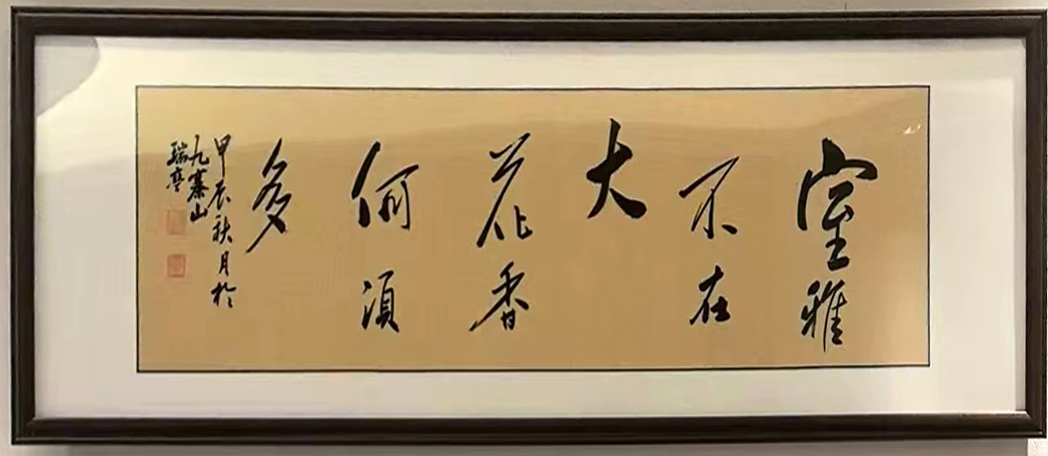 室雅
不在
大
花香
何须
多
甲辰秋月於
九寨山
瑞亭